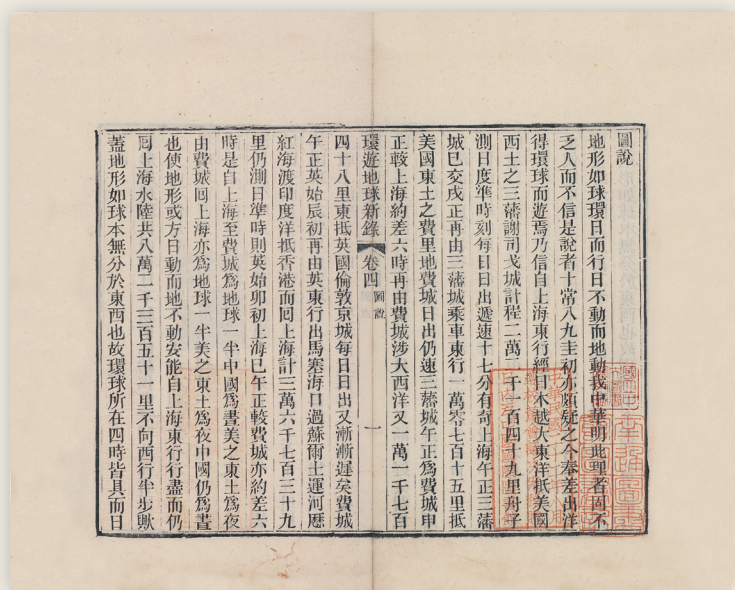 圖說
地形如球環日而行日不動而地動我中華明此理者固不
乏人而不信是說者十常八九圭初亦頗疑之今奉差出洋
得環球而遊焉乃信自上海東行經日本越大東洋抵美國
西土之三藩謝司戈城計程二萬一千一百四十九里舟子
測日度準時刻每日日出遞速十七分有奇上海午正三藩
城巳交戌正再由三藩城乘車東行一萬零七百十五里抵
美國東土之費里地費城日出仍速三藩城午正爲費城申
正較上海約差六時再由費城涉大西洋又一萬一千七百
環遊地球新錄 卷四 圖說 一
四十八里東抵英國倫敦京城每日日出又漸漸遲矣費城
午正英始辰初再由英東行出馬塞海口過蘇爾士運河歷
紅海渡印度洋抵香港而回上海計三萬六千七百三十九
里仍測日準時則英始卯初上海已午正較費城亦約差六
時是自上海至費城爲地球一半中國爲晝美之東土爲夜
由費城回上海亦爲地球一半美之東土爲夜中國仍爲晝
也使地形或方日動而地不動安能自上海東行行盡而仍
回上海水陸共八萬二千三百五十一里不向西行半步歟
蓋地形如球本無分於東西也故環球所在四時皆具而日